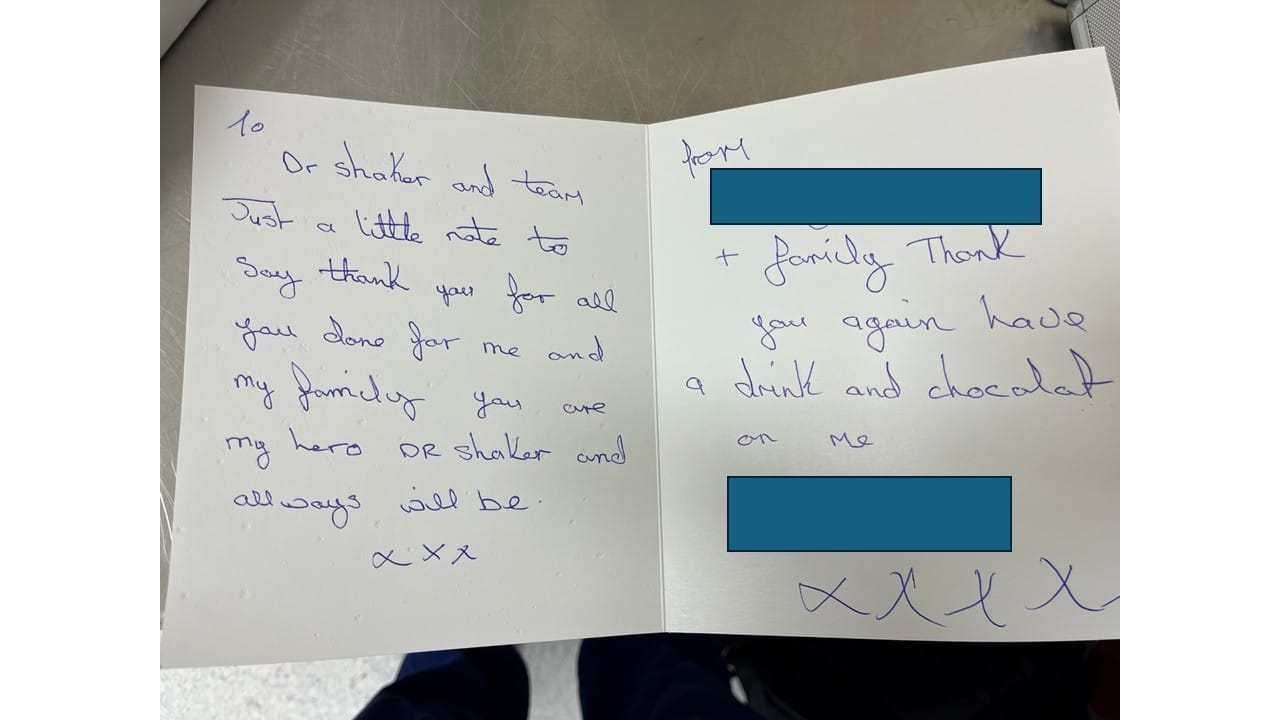 To
Dr shaker and team
Just a little note to
say thank you for all
you done for me and
my family you are
my hero DR shaker and
allways will be.
x x x
from
+ family Thank
you again have
a drink and chocolat
on me
x x x x